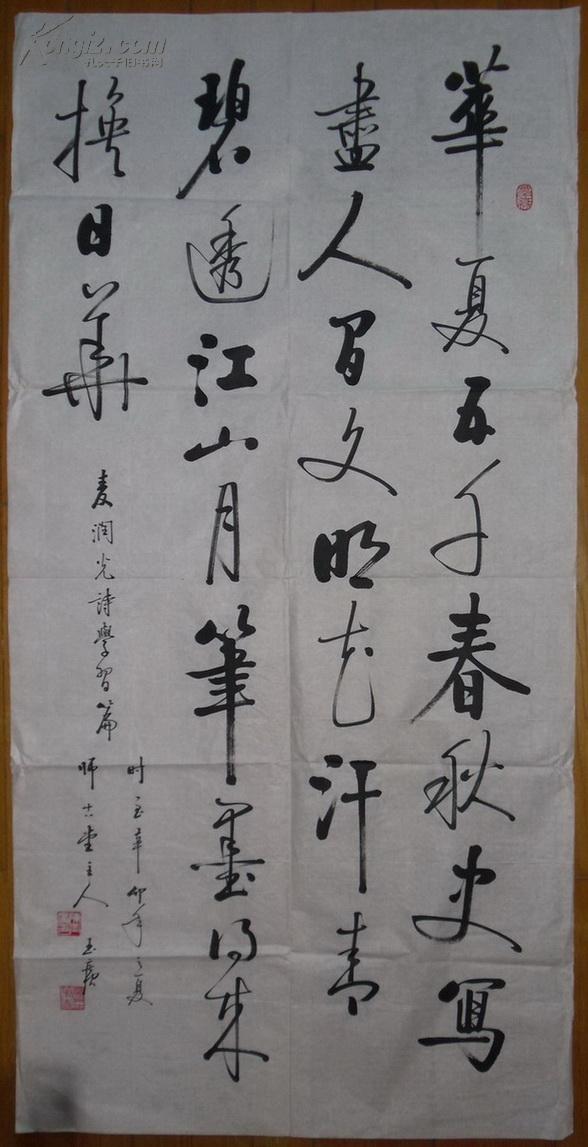 華夏五千春秋史寫
盡人间文明花汗青
碧透江山月筆墨得來
换日華
麦润光詩學習篇
时在辛卯年之夏
师古堂主人
Kongfz.com
孔夫子旧书网